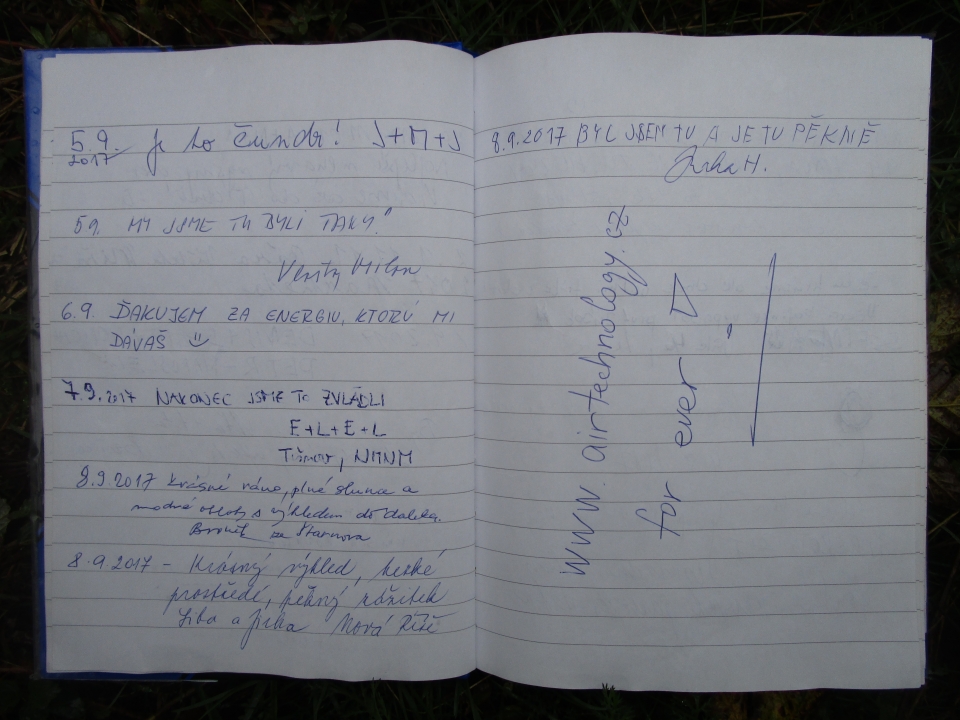 5.9. je to čundr! J+M+J
2017
5.9. MY JSME TU BYLI TAKY!
Milan
6.9. ĎAKUJEM ZA ENERGIU, KTORÚ MI
DÁVAŠ
7.9.2017 NAKONEC JSME TO ZVLÁDLI
E+L+E+L
Tišnov, NMNM
8.9.2017 Krásné ráno, plné slunce a
modré oblohy s výhledem do daleka.
ze
8.9.2017 - Krásný výhled, hezké
prostředí, pěkný zážitek
Liba a Jirka Nová Říše
8.9.2017 BYL JSEM TU A JE TU PĚKNĚ
Jirka H.
www.airtechnology.cz
for ever